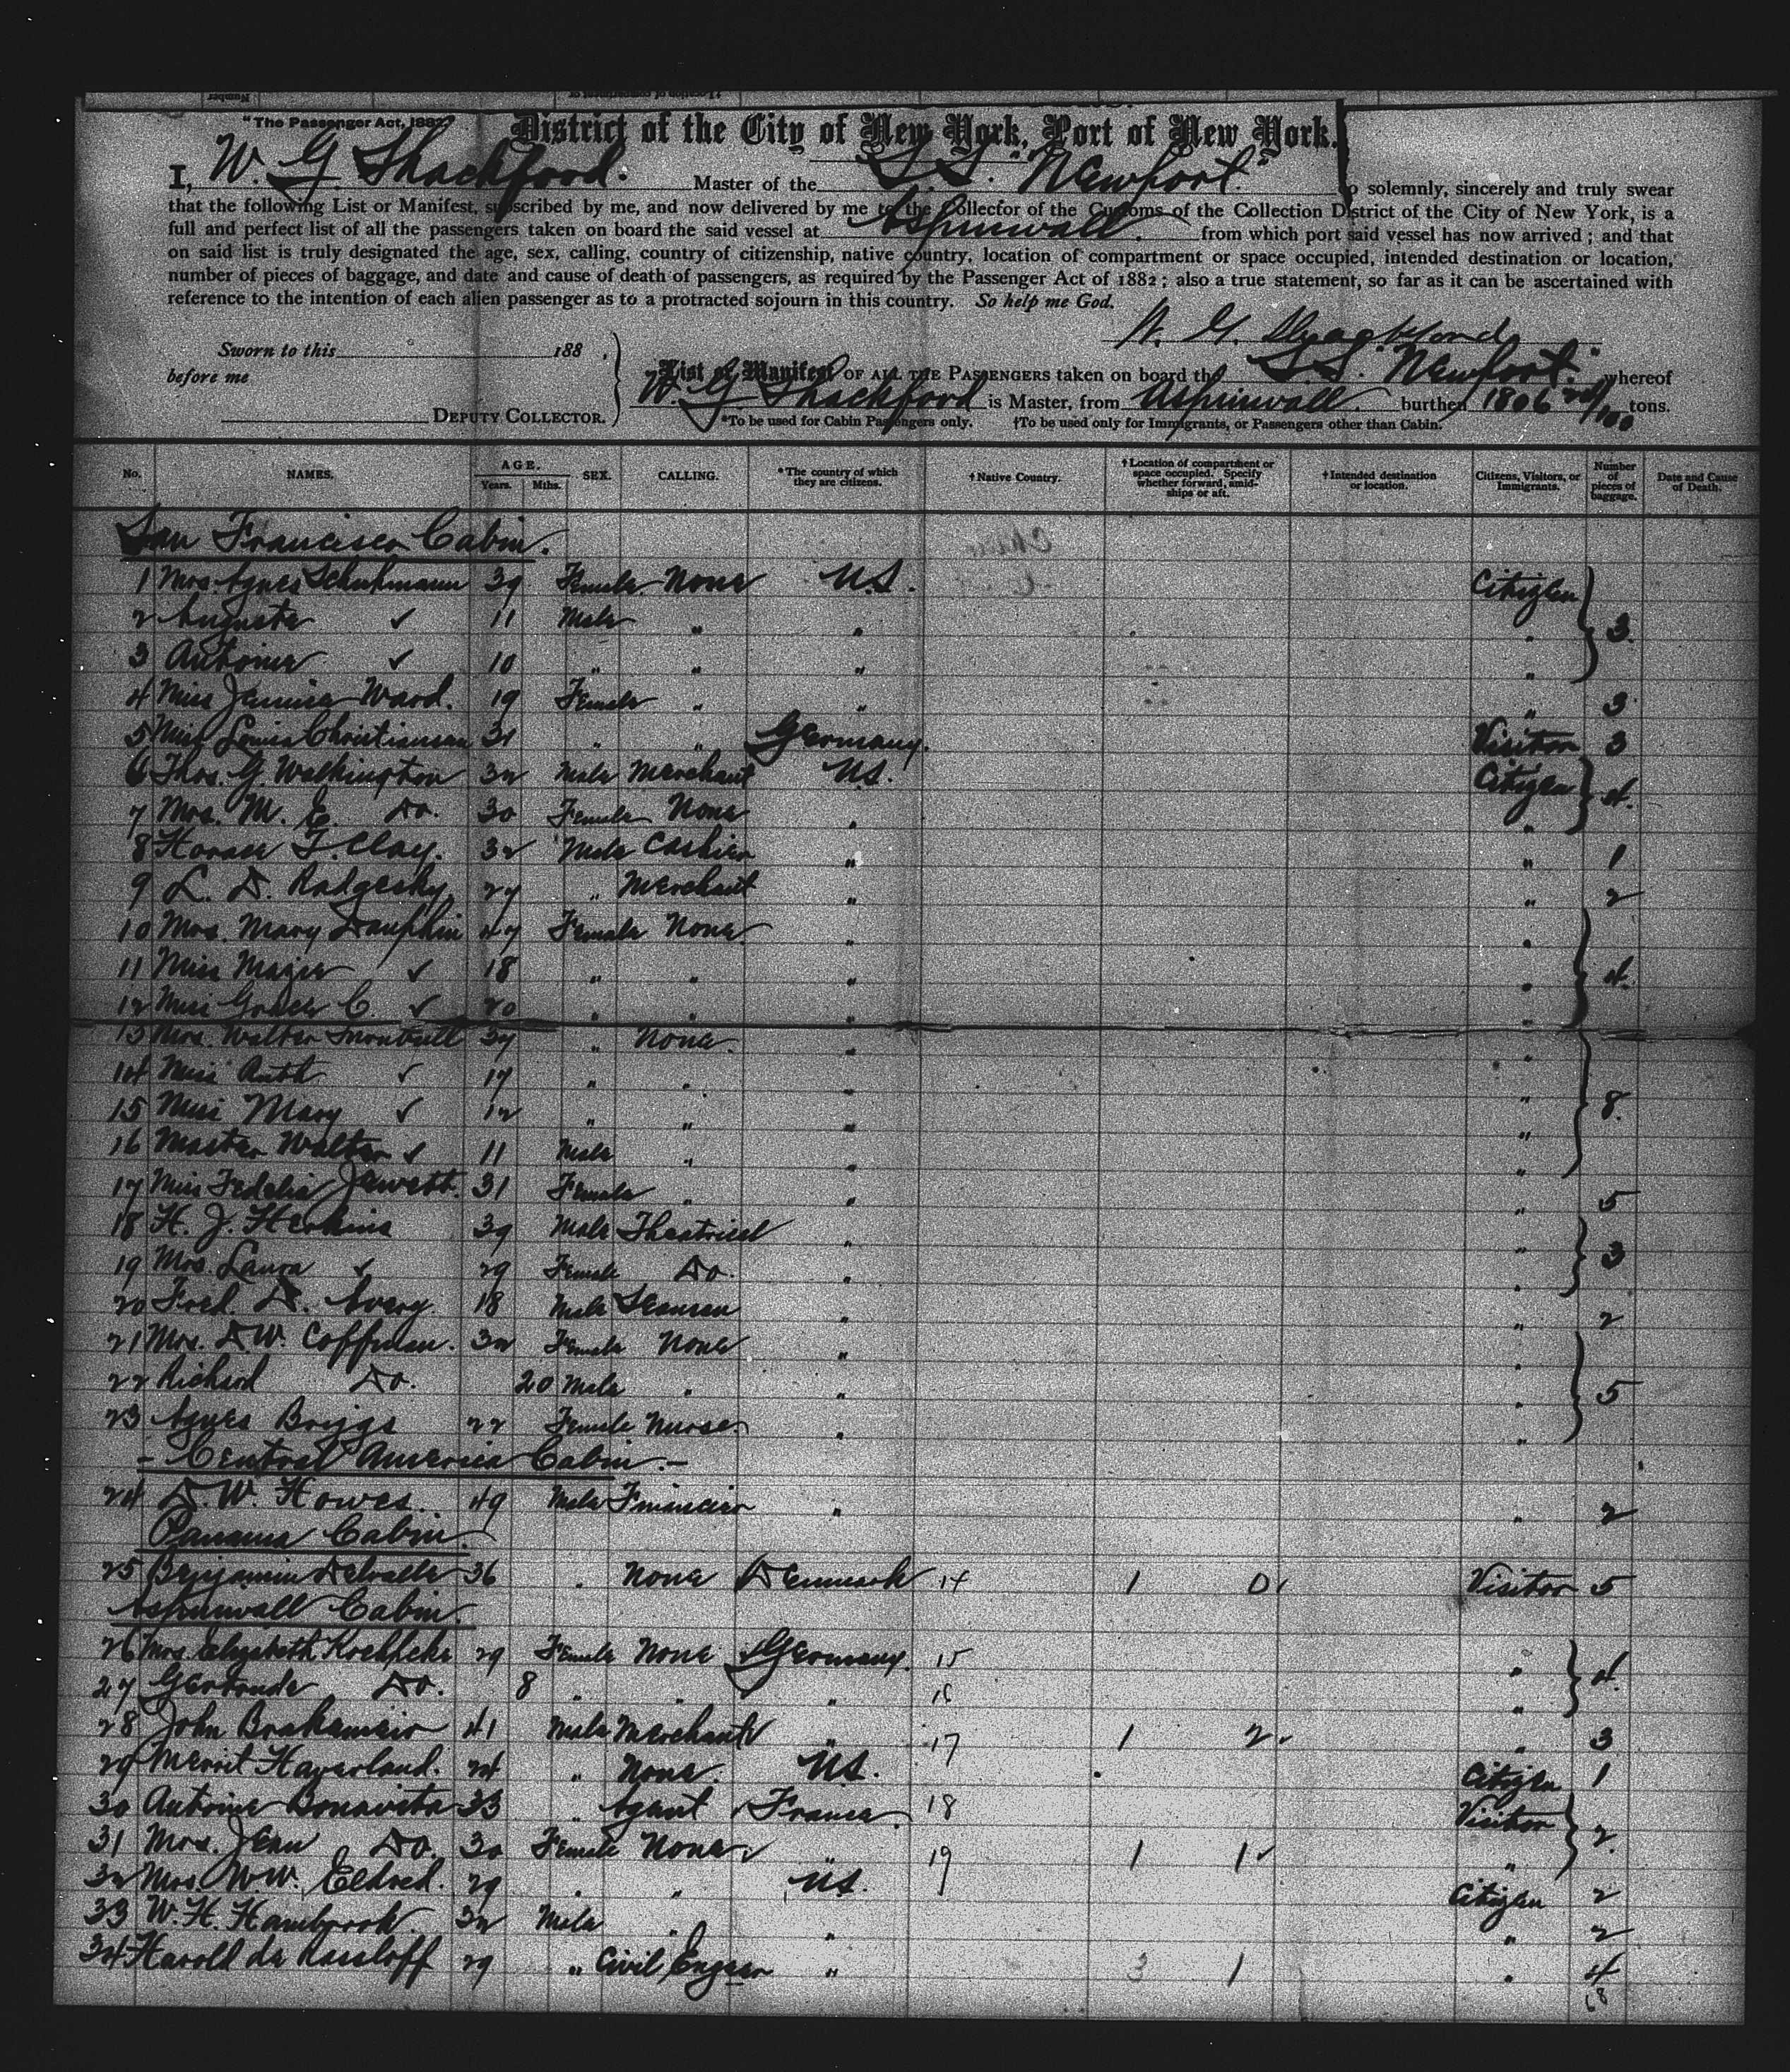 "The Passenger Act, 1882."
District of the City of New York, Port of New York.
I, W. G. Shackford. Master of the S.S. "Newport." do solemnly, sincerely and truly swear
that the following List or Manifest, subscribed by me, and now delivered by me to the Collector of the Customs of the Collection District of the City of New York, is a
full and perfect list of all the passengers taken on board the said vessel at Aspinwall. from which port said vessel has now arrived; and that
on said list is truly designated the age, sex, calling, country of citizenship, native country, location of compartment or space occupied, intended destination or location,
number of pieces of baggage, and date and cause of death of passengers, as required by the Passenger Act of 1882; also a true statement, so far as it can be ascertained with
reference to the intention of each alien passenger as to a protracted sojourn in this country. So help me God.
W. G. Shackford
Sworn to this 188 .
before me
DEPUTY COLLECTOR.
List or Manifest OF ALL THE PASSENGERS taken on board the S.S. "Newport." whereof
W. G Shackford is Master, from Aspinwall. burthen 1806 tons.
*To be used for Cabin Passengers only. †To be used only for Immigrants, or Passengers other than Cabin.
No. NAMES. AGE. Years. Mths. SEX. CALLING. *The country of which they are citizens. †Native Country. †Location of compartment or space occupied. Specify whether forward, amidships or aft. †Intended destination or location. Citizens, Visitors, or Immigrants. Number of pieces of baggage. Date and Cause of Death.
San Francisco Cabin.
1 Mrs. Agnes Schuhmann 39 Female None U.S. Citizen
2 Augusta ✓ 11 Male " " " 3
3 Antoine ✓ 10 " " " "
4 Miss Jennie Ward. 19 Female " " " 3
5 Miss Louisa Christiansen 31 " " Germany. Visitor 3
6 Thos. G Walkington 32 Male Merchant U.S. Citizen 4
7 Mrs. M. E. Do. 30 Female None " "
8 Horace F. Clay. 32 Male Cashier " " 1
9 L. D. 27 " Merchant " " 2
10 Mrs. Mary Dauphin 47 Female None " "
11 Miss Mazie ✓ 18 " " " " 4
12 Miss Grace C. ✓ 20 " " " "
13 Mrs. Walter Turnbull 37 " None. " "
14 Miss Ruth ✓ 17 " " " "
15 Miss Mary ✓ 12 " " " " 8
16 Master Walter ✓ 11 Male " " "
17 Miss Fedelia Jewett. 31 Female " " " 5
18 H. J. Herkins 39 Male Theatrical " " 3
19 Mrs. Laura ✓ 29 Female Do. " "
20 Fred. D. Avery 18 Male Seaman " " 2
21 Mrs. D.W. Coffman. 32 Female None " "
22 Richard Do. 20 Male " " " 5
23 Agnes Briggs 22 Female Nurse " "
- Central America Cabin. -
24 D. W. Howes. 49 Male Financier " " 2
Panama Cabin.
25 Benjamin Delvalle 36 " None Denmark 14 1 0 Visitor 5
Aspinwall Cabin.
26 Mrs. Elizabeth Koehpcke 29 Female None Germany. 15 " 4
27 Gertrude Do. 8 " " " 16 "
28 John Brakemeir 41 Male Merchant " 17 1 2 " 3
29 Merrit Haverland. 24 " None. U.S. Citizen 1
30 Antoine Bonavita 33 " Agent France 18 Visitor 2
31 Mrs. Jean Do. 30 Female None " 19 1 1 "
32 Mrs. W.W. Eldred. 29 " " U.S. Citizen 2
33 W. H. Hambrook. 32 Male " " " 2
34 Harold de 29 " Civil Engeer " 3 1 " 4
68